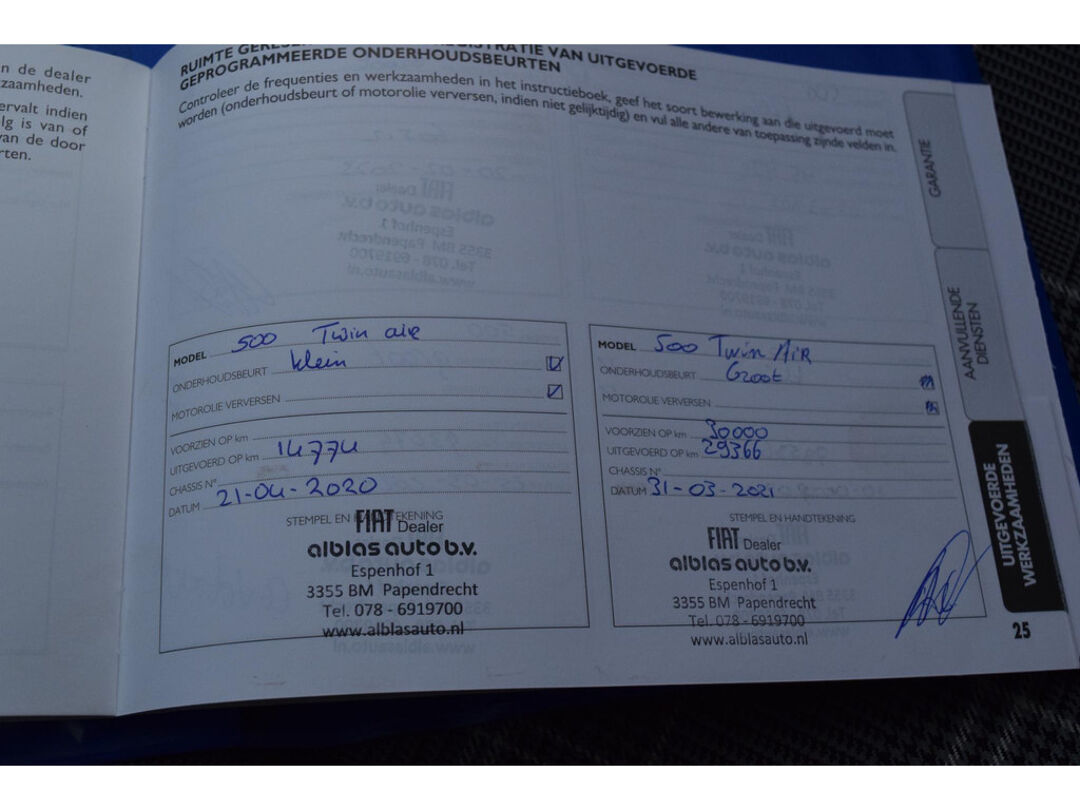 n de dealer
zaamheden.
ervalt indien
lg is van of
van de door
rten.
RUIMTE VAN UITGEVOERDE
GEPROGRAMMEERDE ONDERHOUDSBEURTEN
Controleer de frequenties en werkzaamheden in het instructieboek, geef het soort bewerking aan die uitgevoerd moet
worden (onderhoudsbeurt of motorolie verversen, indien niet gelijktijdig) en vul alle andere van toepassing zijnde velden in.
MODEL 500 Twin air
ONDERHOUDSBEURT klein
MOTOROLIE VERVERSEN
VOORZIEN OP km
UITGEVOERD OP km 14774
CHASSIS N°
DATUM 21-04-2020
STEMPEL EN TEKENING
FIAT Dealer
alblas auto b.v.
Espenhof 1
3355 BM Papendrecht
Tel. 078 - 6919700
www.alblasauto.nl
MODEL 500 Twin AiR
ONDERHOUDSBEURT Groot
MOTOROLIE VERVERSEN
VOORZIEN OP km 30000
UITGEVOERD OP km 29366
CHASSIS N°
DATUM 31-03-2021
STEMPEL EN HANDTEKENING
FIAT Dealer
alblas auto b.v.
Espenhof 1
3355 BM Papendrecht
Tel. 078 - 6919700
www.alblasauto.nl
GARANTIE
AANVULLENDE
DIENSTEN
UITGEVOERDE
WERKZAAMHEDEN
25